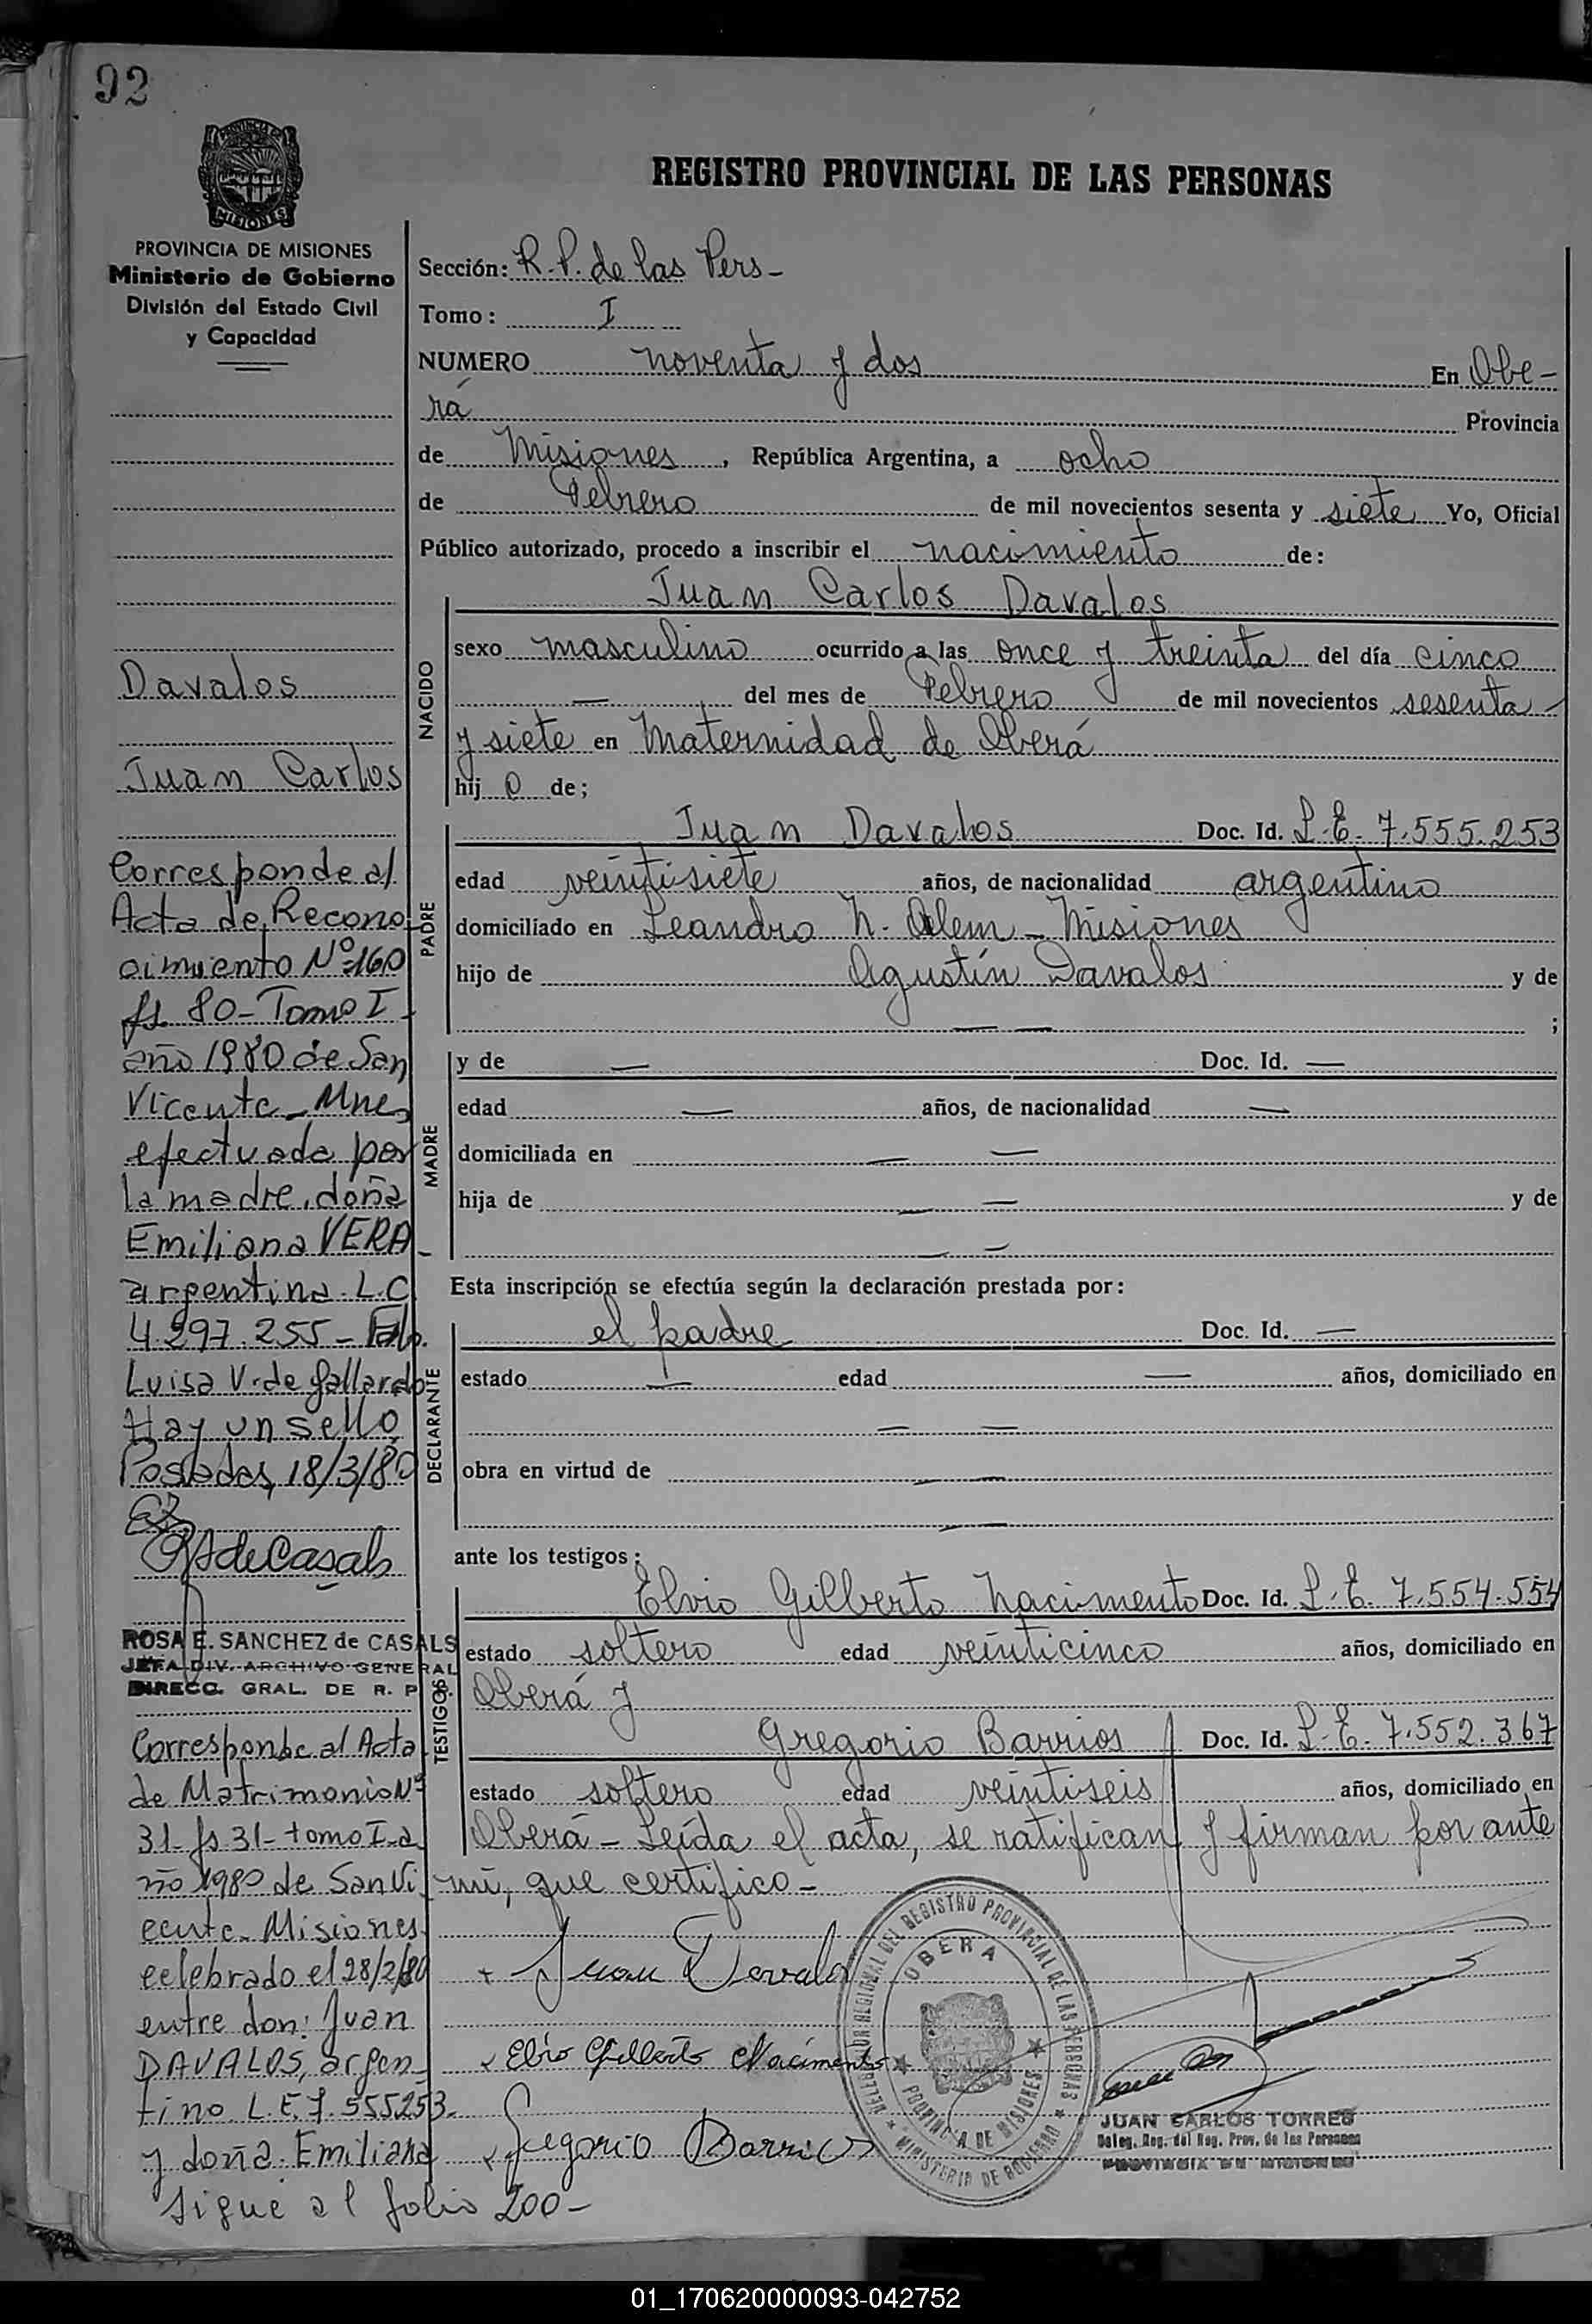 92
PROVINCIA DE
MISIONES
REGISTRO PROVINCIAL DE LAS PERSONAS
PROVINCIA DE MISIONES
Ministerio de Gobierno
División del Estado Civil
y Capacidad
Sección: R.P. de las Pers-
Tomo: I
NUMERO noventa y dos En Obe-
rá Provincia
de Misiones, República Argentina, a ocho
de Febrero de mil novecientos sesenta y siete Yo, Oficial
Público autorizado, procedo a inscribir el nacimiento de:
NACIDO
Juan Carlos Davalos
sexo masculino ocurrido a las once y treinta del día cinco
— del mes de Febrero de mil novecientos sesenta -
y siete en Maternidad de Oberá
hij o de;
PADRE
Juan Davalos Doc. Id. L.E. 7.555.253
edad veintisiete años, de nacionalidad argentino
domiciliado en Leandro N. Alem - Misiones
hijo de Agustín Davalos y de
— — ;
MADRE
y de — Doc. Id. —
edad — años, de nacionalidad —
domiciliada en — —
hija de — — y de
— —
Esta inscripción se efectúa según la declaración prestada por:
DECLARANTE
el padre Doc. Id. —
estado — edad — años, domiciliado en
— —
obra en virtud de — —
—
ante los testigos:
TESTIGOS
Elvio Gilberto Nacimento Doc. Id. L.E. 7.554.554
estado soltero edad veinticinco años, domiciliado en
Oberá y
Gregorio Barrios Doc. Id. L.E. 7.552.367
estado soltero edad veintiseis años, domiciliado en
Oberá - Leída el acta, se ratifican y firman por ante
mi, que certifico -
Juan Davalos
Elvio Gilberto Nacimento
Gregorio Barrios
REGISTRO PROVINCIAL DE LAS PERSONAS
OBERA
PROVINCIA DE MISIONES
MINISTERIO DE GOBIERNO
JUAN CARLOS TORRES
Deleg. Reg. del Reg. Prov. de las Personas
PROVINCIA DE MISIONES
Davalos
Juan Carlos
Corresponde al
Acta de Recono
cimiento Nº 160
fs. 80 - Tomo I -
año 1980 de San
Vicente - Mnes
efectuada por
la madre, doña
Emiliana VERA -
argentina. L.C.
4.297.255 - Fdo.
Luisa V. de Gallardo
Hay un sello
Posadas, 18/3/80
ROSA E. SANCHEZ de CASALS
JEFA DIV. ARCHIVO GENERAL
DIRECC. GRAL. DE R. P.
Corresponde al Acta
de Matrimonio Nº
31 - fs 31 - tomo I - a
ño 1980 de San Vi
cente - Misiones
celebrado el 28/2/80
entre don: Juan
DAVALOS, argen-
tino L.E. 7.555253 -
y doña: Emiliana
sigue al folio 200 -
01_170620000093-042752